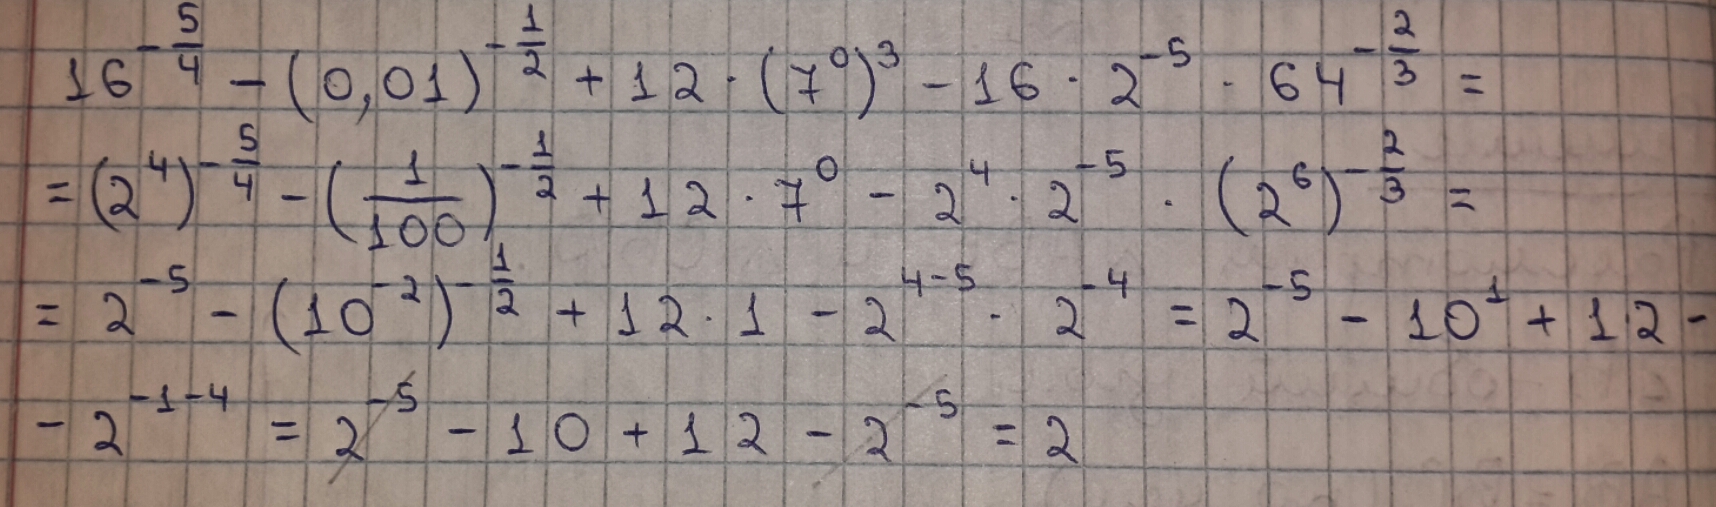 16^{-\frac{5}{4}} - (0,01)^{-\frac{1}{2}} + 12 · (7^0)^3 - 16 · 2^{-5} · 64^{-\frac{2}{3}} =
= (2^4)^{-\frac{5}{4}} - (\frac{1}{100})^{-\frac{1}{2}} + 12 · 7^0 - 2^4 · 2^{-5} · (2^6)^{-\frac{2}{3}} =
= 2^{-5} - (10^{-2})^{-\frac{1}{2}} + 12 · 1 - 2^{4-5} · 2^{-4} = 2^{-5} - 10^1 + 12 -
- 2^{-1-4} = 2^{-5} - 10 + 12 - 2^{-5} = 2